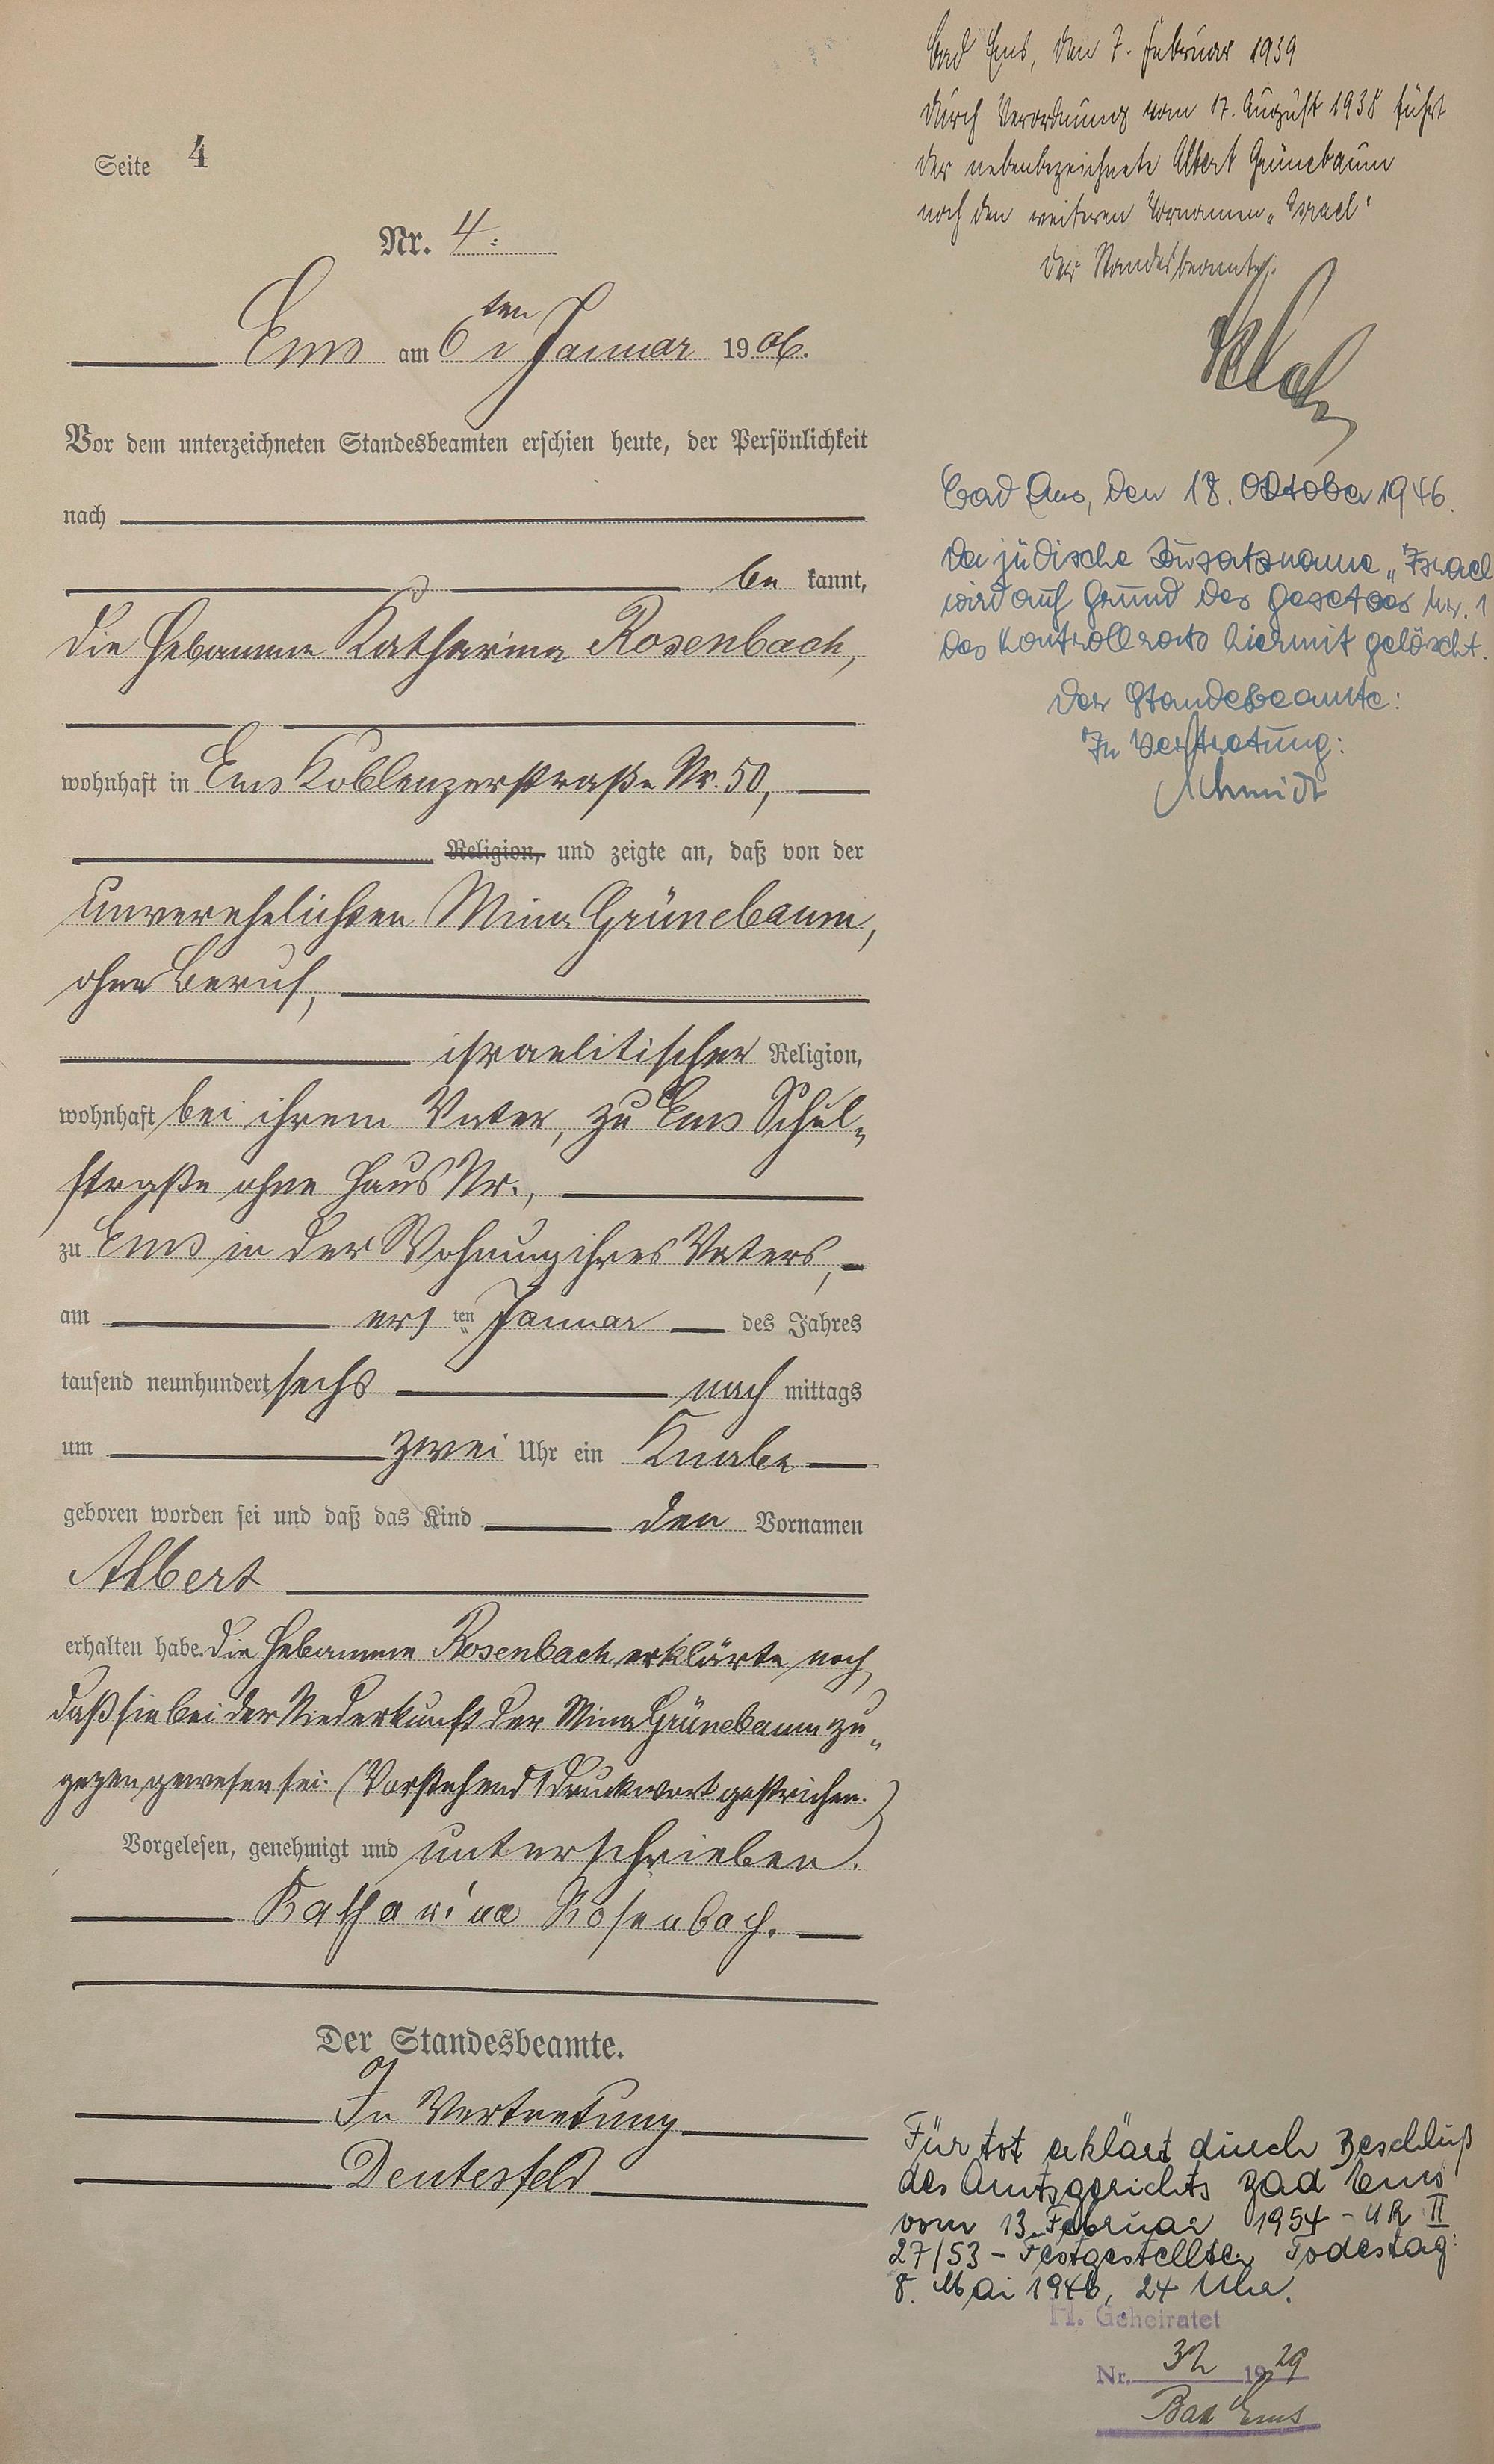 Seite 4
Nr. 4.
Ems am 6ten Januar 1906.
Vor dem unterzeichneten Standesbeamten erschien heute, der Persönlichkeit
nach
be kannt,
die Hebamme Katharina Rosenbach,
wohnhaft in Ems Koblenzerstraße Nr. 50,
Religion, und zeigte an, daß von der
unverehelichten Mina Grünebaum,
ohne Beruf,
israelitischer Religion,
wohnhaft bei ihrem Vater, zu Ems Schul-
straße ohne Haus Nr.,
zu Ems in der Wohnung ihres Vaters,
am ersten Januar des Jahres
tausend neunhundert sechs nach mittags
um zwei Uhr ein Knabe
geboren worden sei und daß das Kind den Vornamen
Albert
erhalten habe. Die Hebamme Rosenbach erklärte noch,
daß sie bei der Niederkunft der Mina Grünebaum zu-
gegen gewesen sei. (Vorstehend 1 Druckwort gestrichen.)
Vorgelesen, genehmigt und unterschrieben.
Katharina Rosenbach.
Der Standesbeamte.
In Vertretung
Deutesfeld
Bad Ems, den 7. Februar 1939
Durch Verordnung vom 17. August 1938 führt
der nebenbezeichnete Albert Grünebaum
noch den weiteren Vornamen „Israel“
Der Standesbeamte:
Bad Ems, den 18. Oktober 1946.
Der jüdische Zusatzname „Israel
wird auf Grund des Gesetzes Nr. 1
des Kontrollrats hiermit gelöscht.
Der Standesbeamte:
In Vertretung:
Schmidt
Für tot erklärt durch Beschluß
des Amtsgerichts Bad Ems
vom 13. Februar 1954 - UR II
27/53 - Festgestellter Todestag:
8. Mai 1945, 24 Uhr.
H. Geheiratet
Nr. 32 1929
Bad Ems